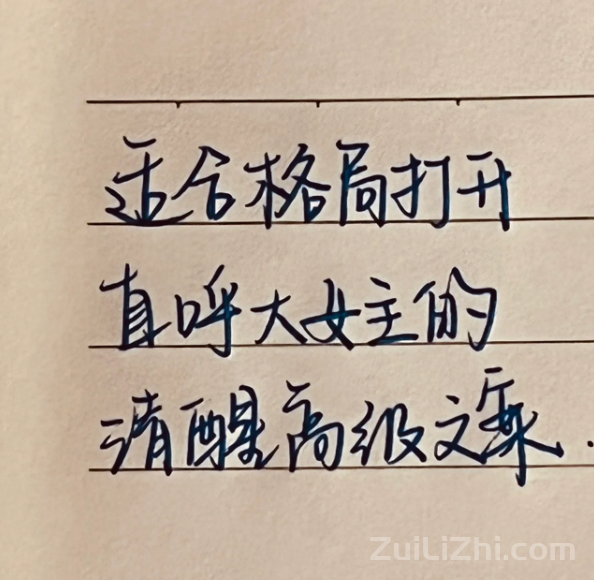 适合格局打开
直呼大女主的
清醒高级文案.
ZuiLiZhi.com